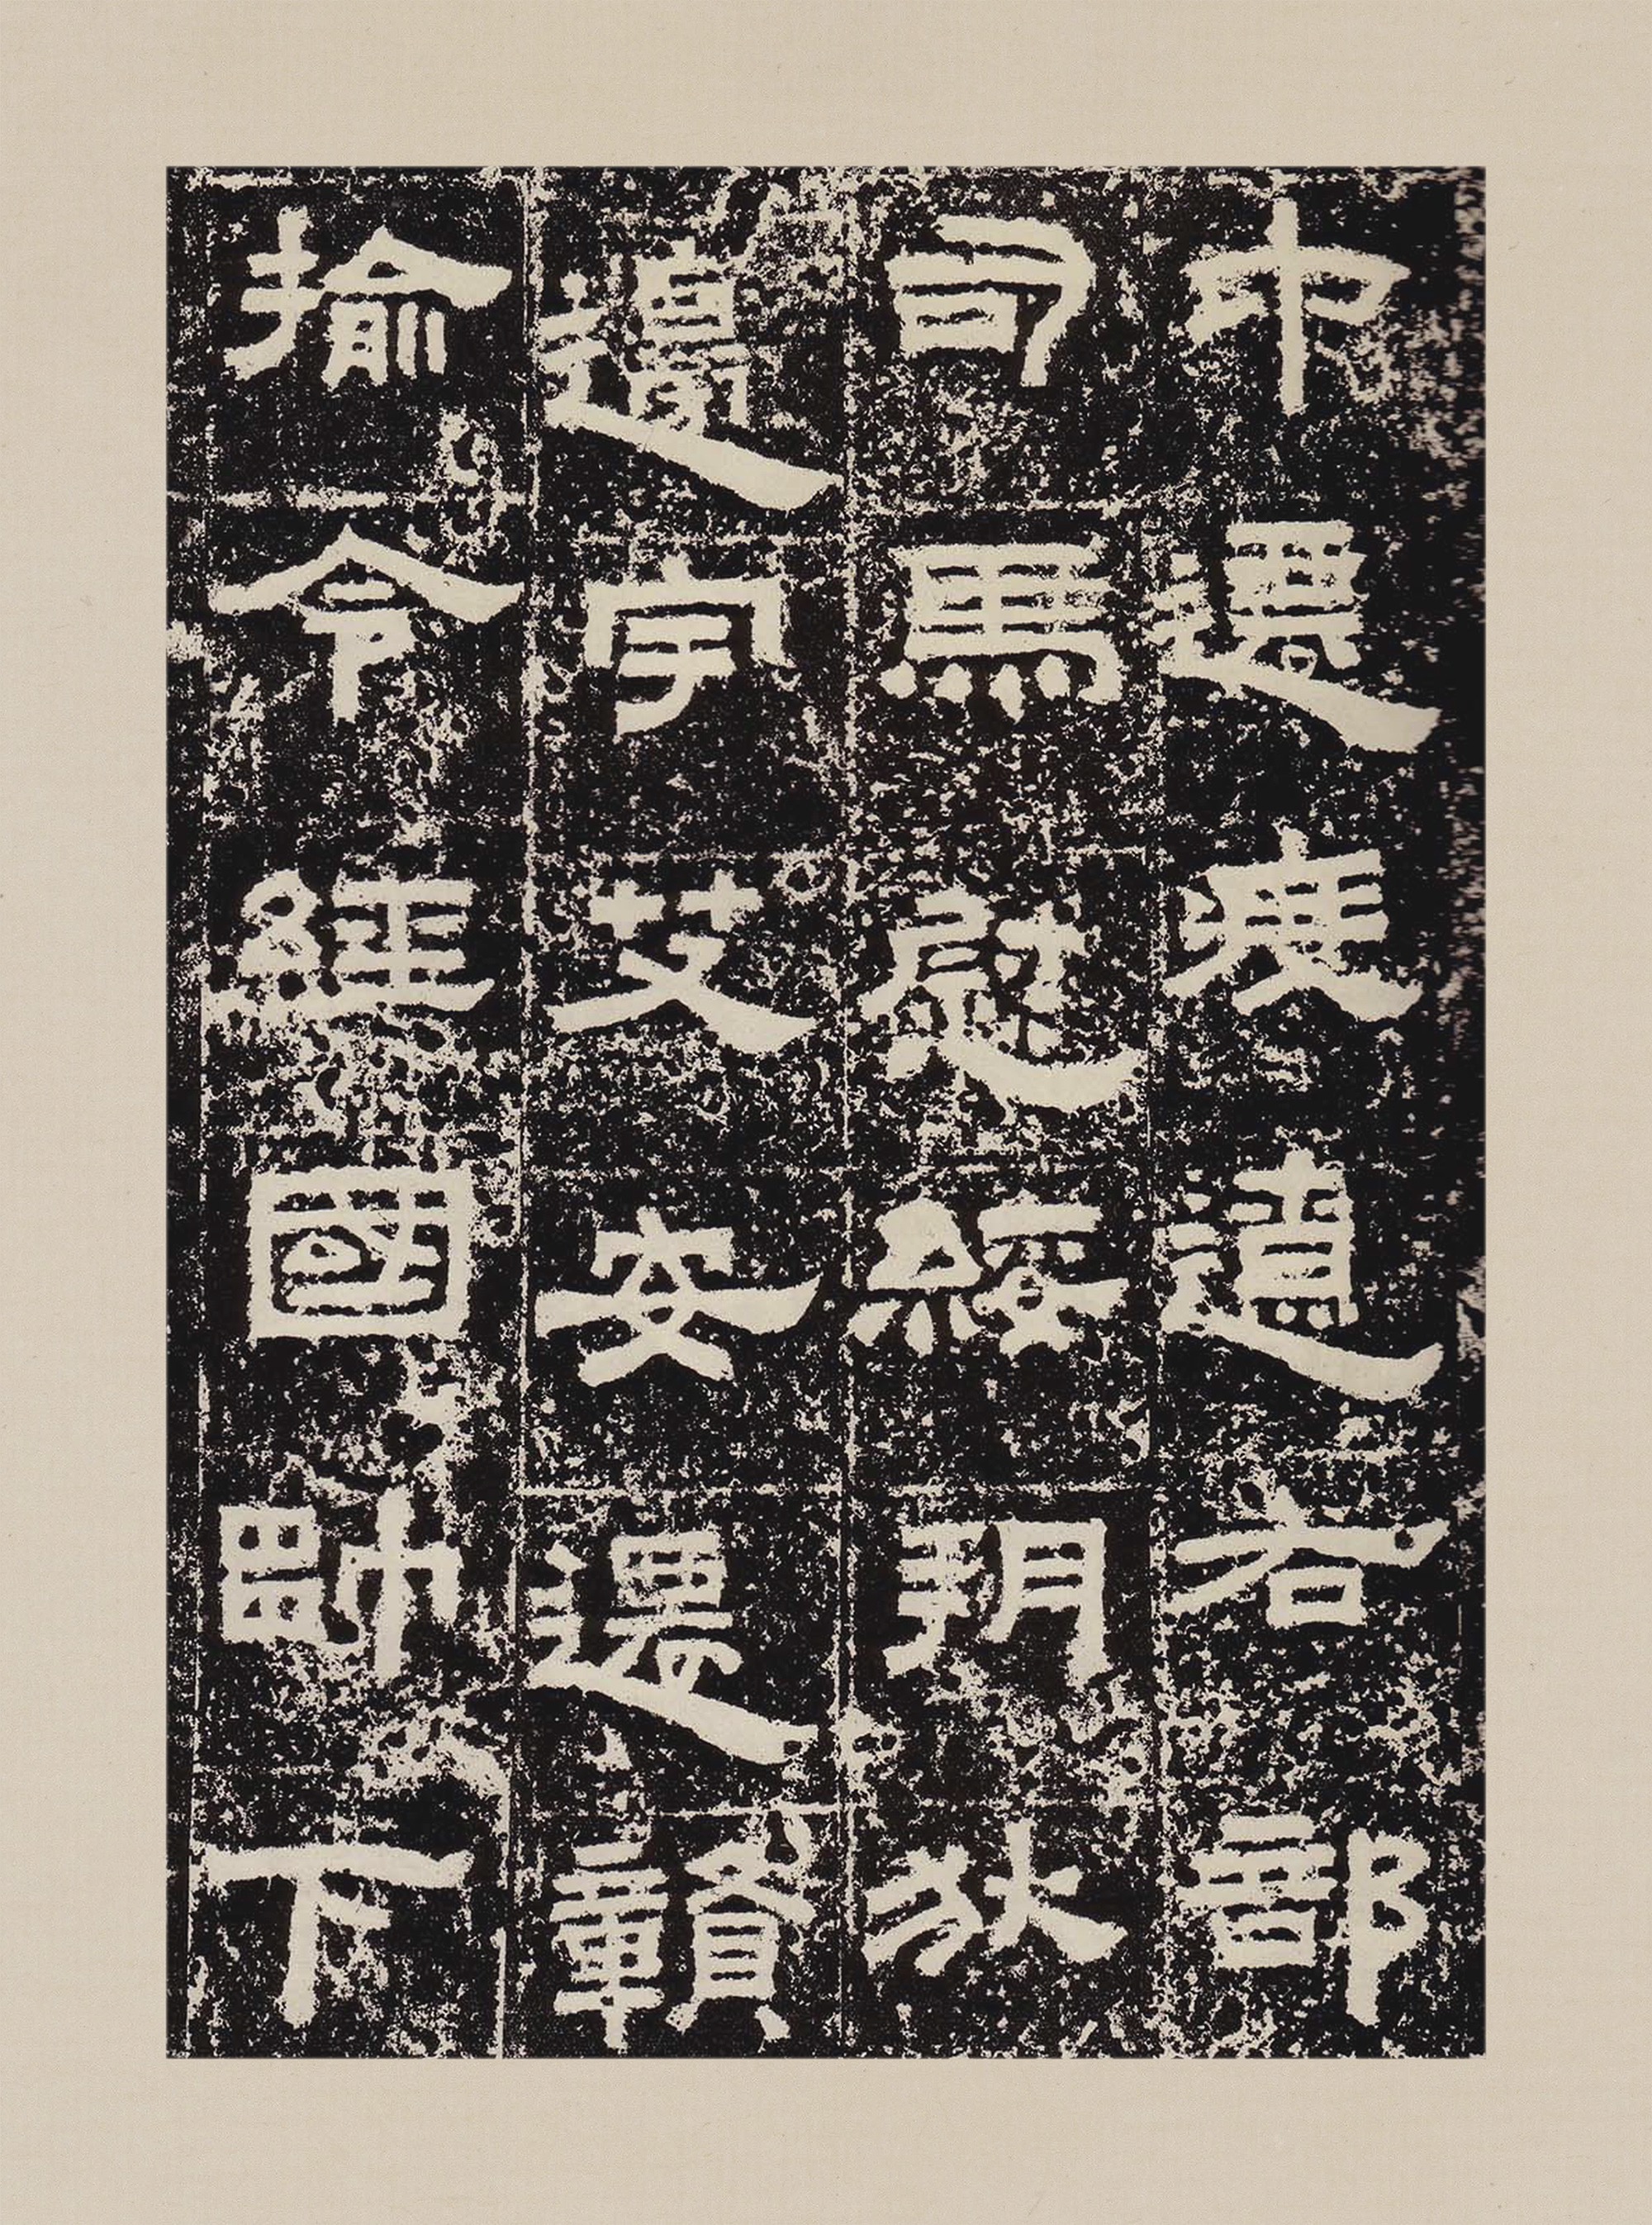 中遷度遼右部
司馬慰綏朔狄
邊宇艾安遷贛
揄令經國帥下